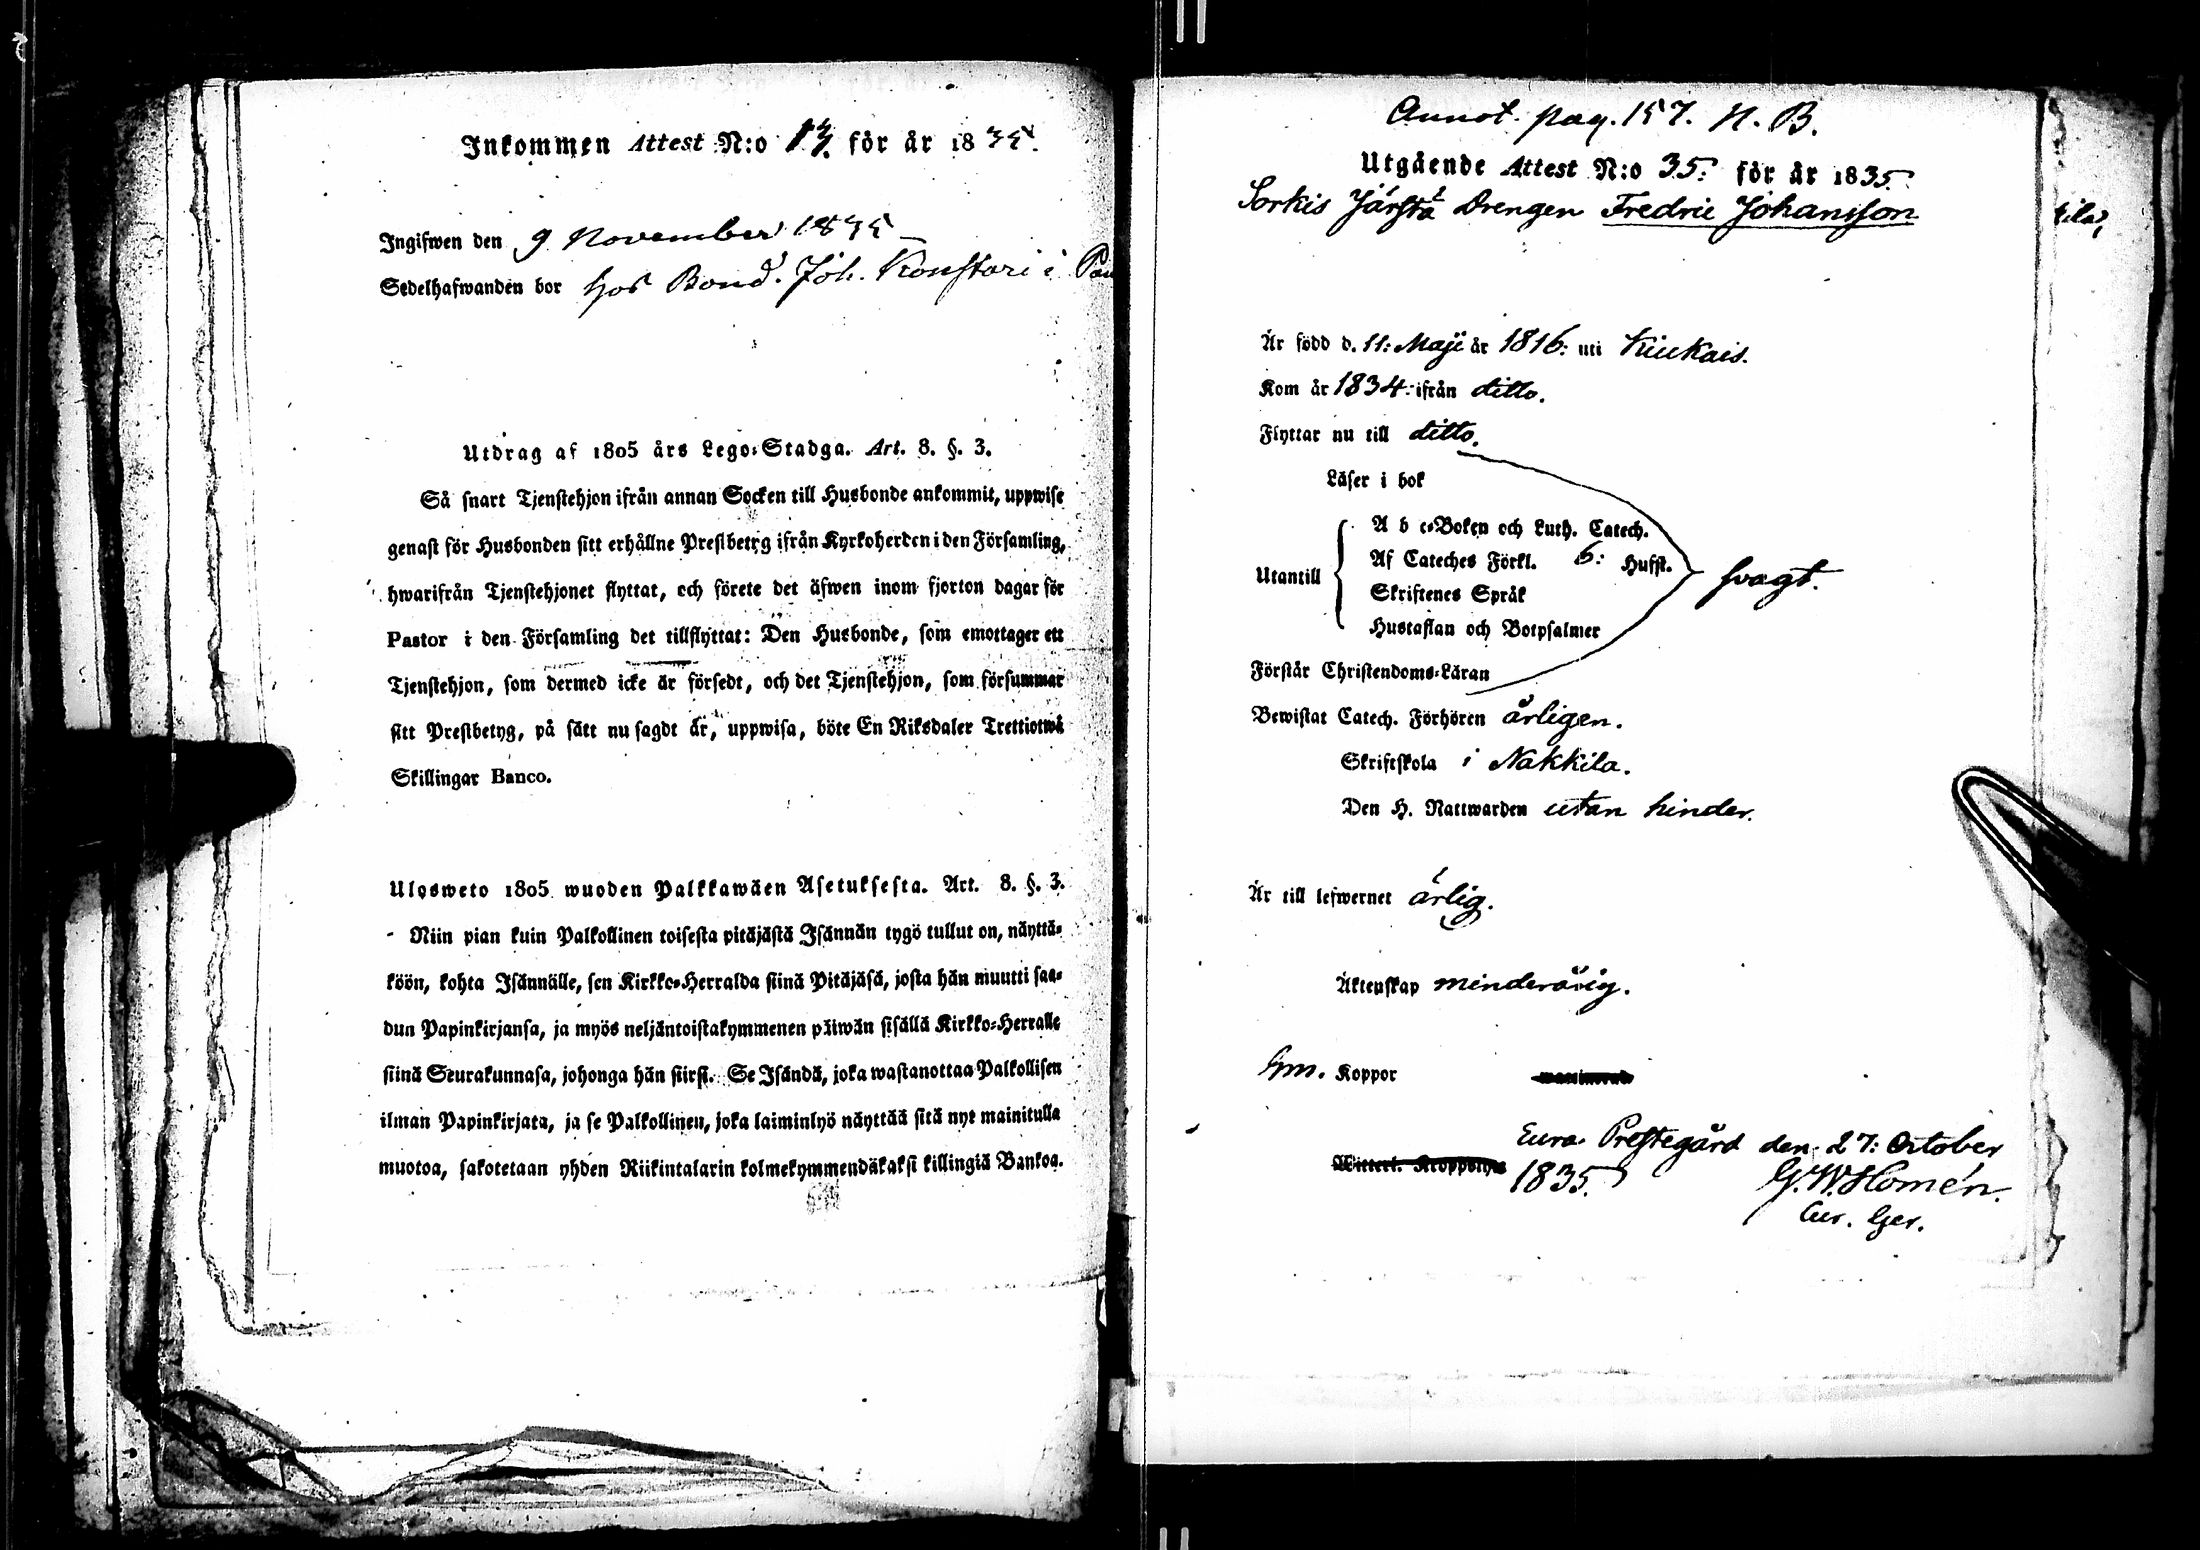 Inkommen Attest N:o 13. för år 1835.
Ingifwen den 9 November 1835
Sedelhafwanden bor hos Bond. Joh. Konstari i
Utdrag af 1805 års Lego-Stadga. Art. 8. §. 3.
Så snart Tjenstehjon ifrån annan Socken till Husbonde ankommit, uppwise
genast för Husbonden sitt erhållne Prestbetyg ifrån Kyrkoherden i den Församling,
hwarifrån Tjenstehjonet flyttat, och förete det äfwen inom fjorton dagar för
Pastor i den Församling det tillflyttat: Den Husbonde, som emottager ett
Tjenstehjon, som dermed icke är försedt, och det Tjenstehjon, som försummar
sitt Prestbetyg, på sätt nu sagdt är, uppwisa, böte En Riksdaler Trettiotwå
Skillingar Banco.
Ulosweto 1805 wuoden Palkkawäen Asetuksesta. Art. 8. §. 3.
Niin pian kuin Palkollinen toisesta pitäjästä Isännän tygö tullut on, näyttä-
köön, kohta Isännälle, sen Kirkko-Herralda siinä Pitäjäsä, josta hän muutti saa-
dun Papinkirjansa, ja myös neljäntoistakymmenen päiwän sisällä Kirkko-Herralle
siinä Seurakunnasa, johonga hän siirsi. Se Isändä, joka wastanottaa Palkollisen
ilman Papinkirjata, ja se Palkollinen, joka laiminlyö näyttää sitä nyt mainitulla
muotoa, sakotetaan yhden Riikintalarin kolmekymmendäkaksi killingiä Bankoa.
Annot. pag. 157. N. B.
Utgående Attest N:o 35. för år 1835.
Sorkis Drengen Fredric Johansson
Är född d. 11: Maji år 1816: uti Kiukais.
Kom år 1834: ifrån ditto.
Flyttar nu till ditto.
Läser i bok
A b c-Boken och Luth. Catech.
Af Cateches Förkl. 6: Hufst.
Utantill svagt.
Skriftenes Språk
Hustaflan och Botpsalmer
Förstår Christendoms-Läran
Bewistat Catech. Förhören årligen.
Skriftskola i Nakkila.
Den H. Nattwarden utan hinder.
Är till lefwernet ärlig.
Äktenskap minderårig.
Koppor
Eura Prestegård den 27: October
1835.
G. W. Homén.